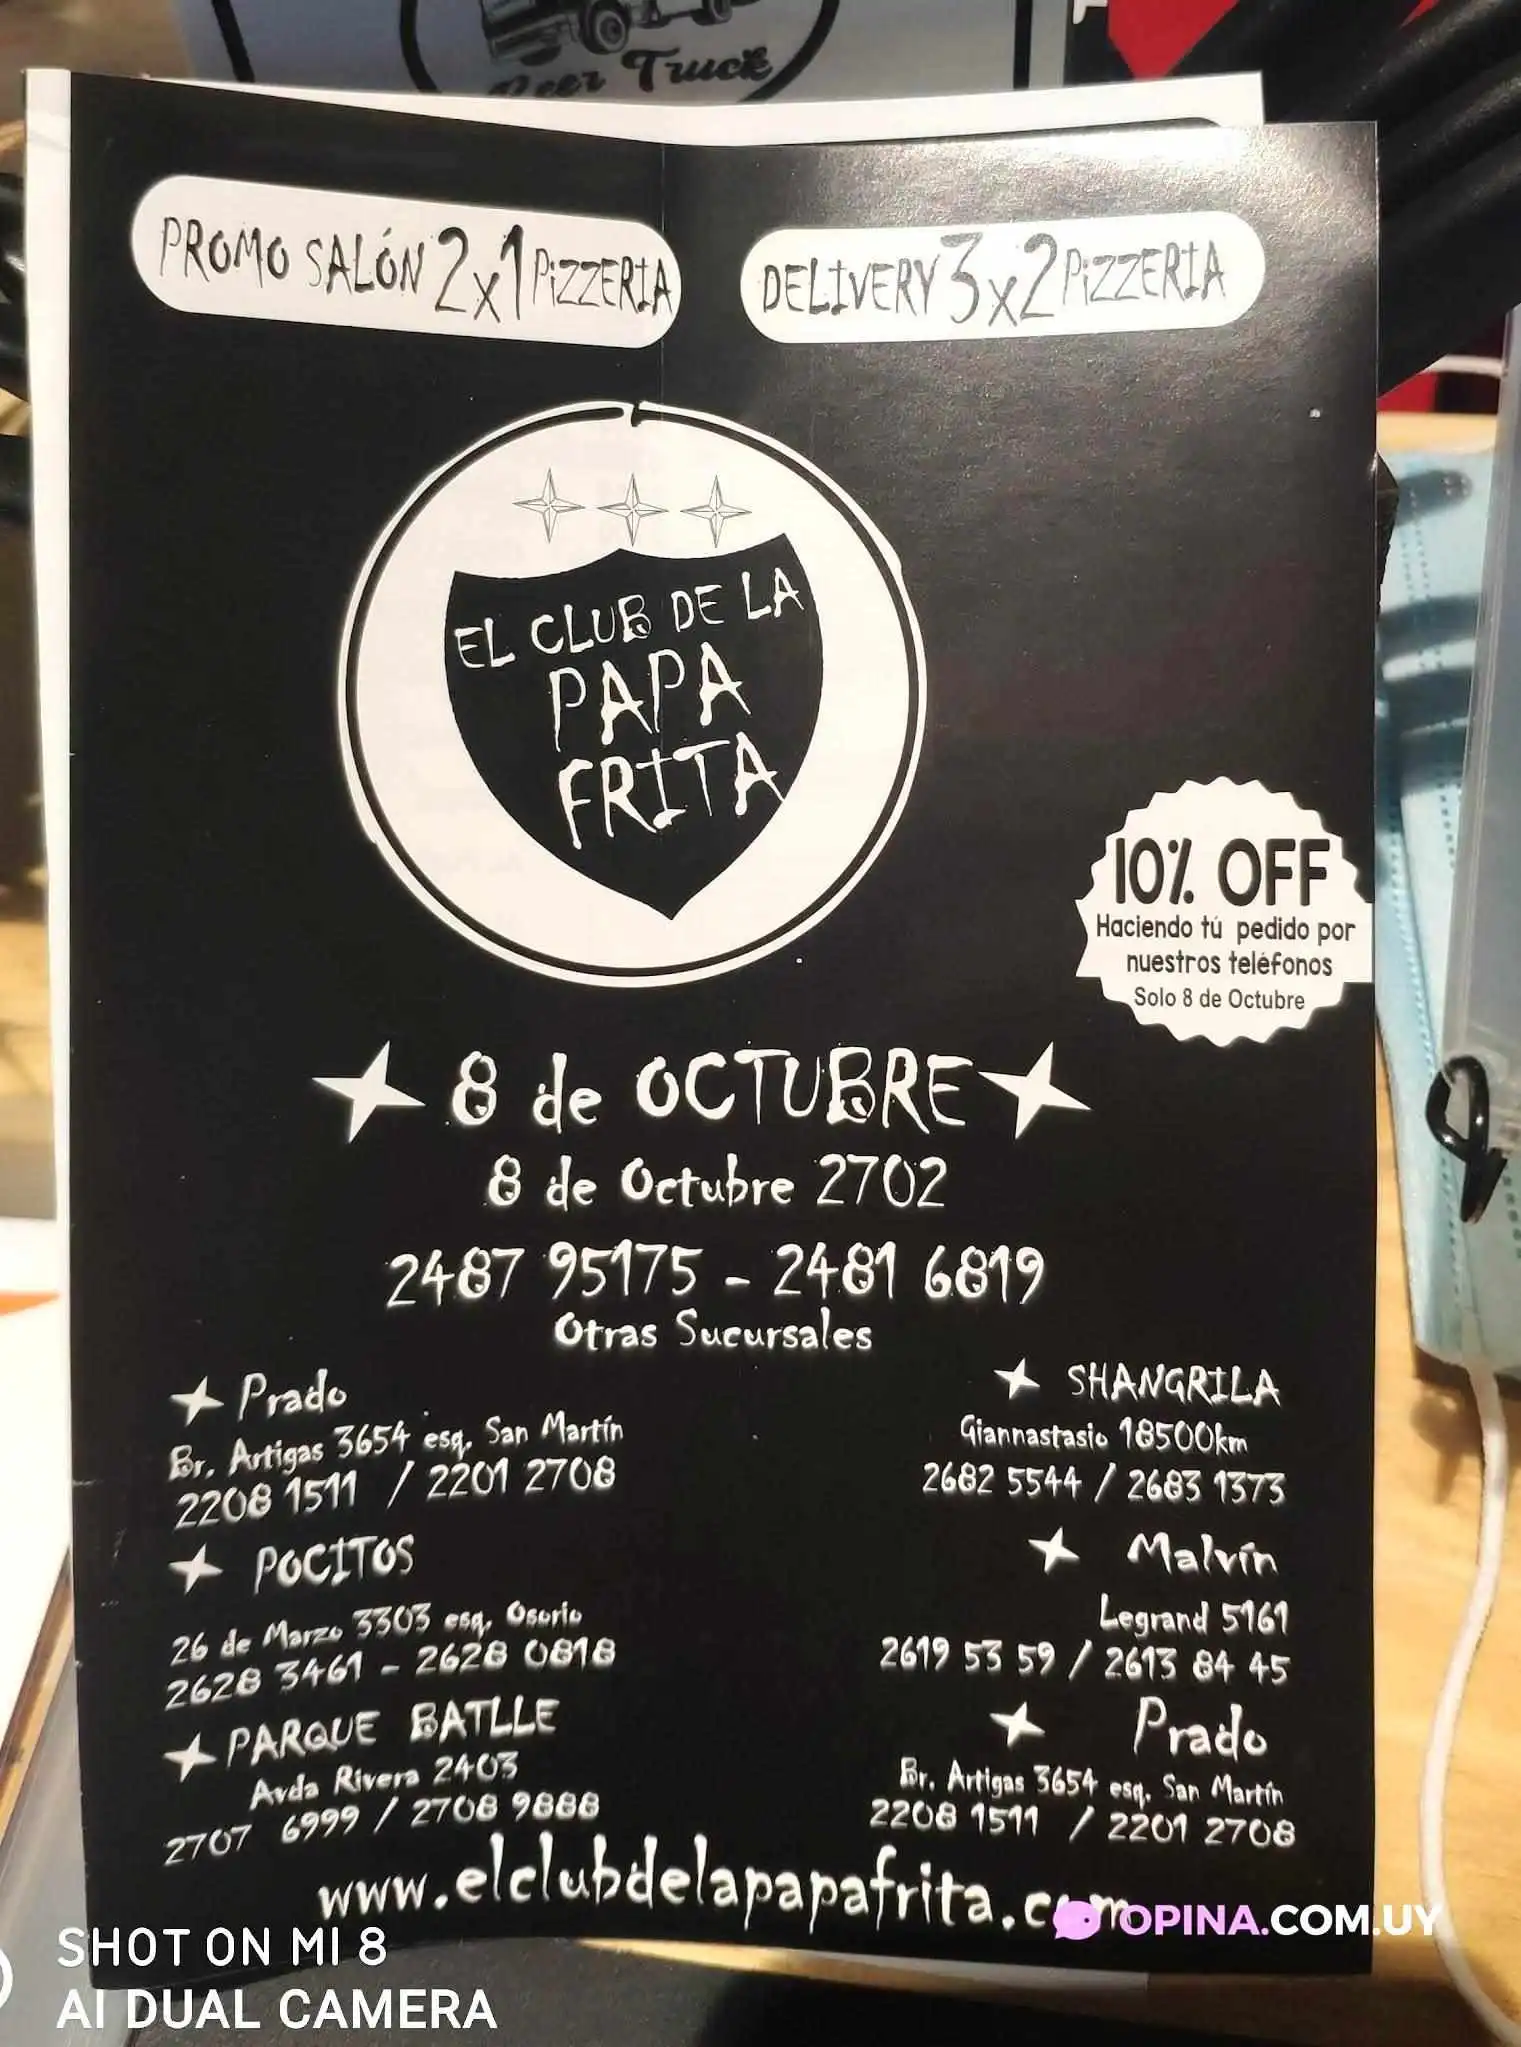 Beer Truck
PROMO SALÓN 2x1 PIZZERIA
DELIVERY 3x2 PIZZERIA
EL CLUB DE LA
PAPA
FRITA
10% OFF
Haciendo tú pedido por
nuestros teléfonos
Solo 8 de Octubre
8 de OCTUBRE
8 de Octubre 2702
2487 95175 - 2481 6819
Otras Sucursales
Prado
Br. Artigas 3654 esq. San Martín
2208 1511 / 2201 2708
POCITOS
26 de Marzo 3303 esq. Osorio
2628 3461 - 2628 0818
PARQUE BATLLE
Avda Rivera 2403
2707 6999 / 2708 9888
SHANGRILA
Giannastasio 18500km
2682 5544 / 2683 1373
Malvín
Legrand 5161
2619 53 59 / 2613 84 45
Prado
Br. Artigas 3654 esq. San Martín
2208 1511 / 2201 2708
www.elclubdelapapafrita.com
OPINA.COM.UY
SHOT ON MI 8
AI DUAL CAMERA